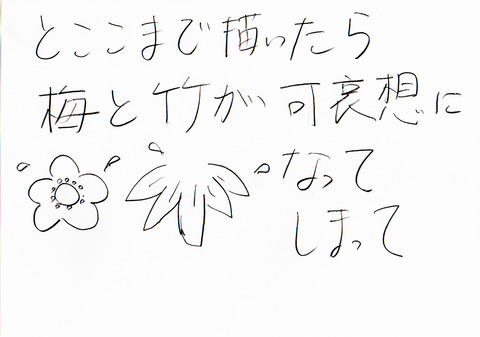 とここまで描いたら
梅と竹が可哀想に
なって
しまって